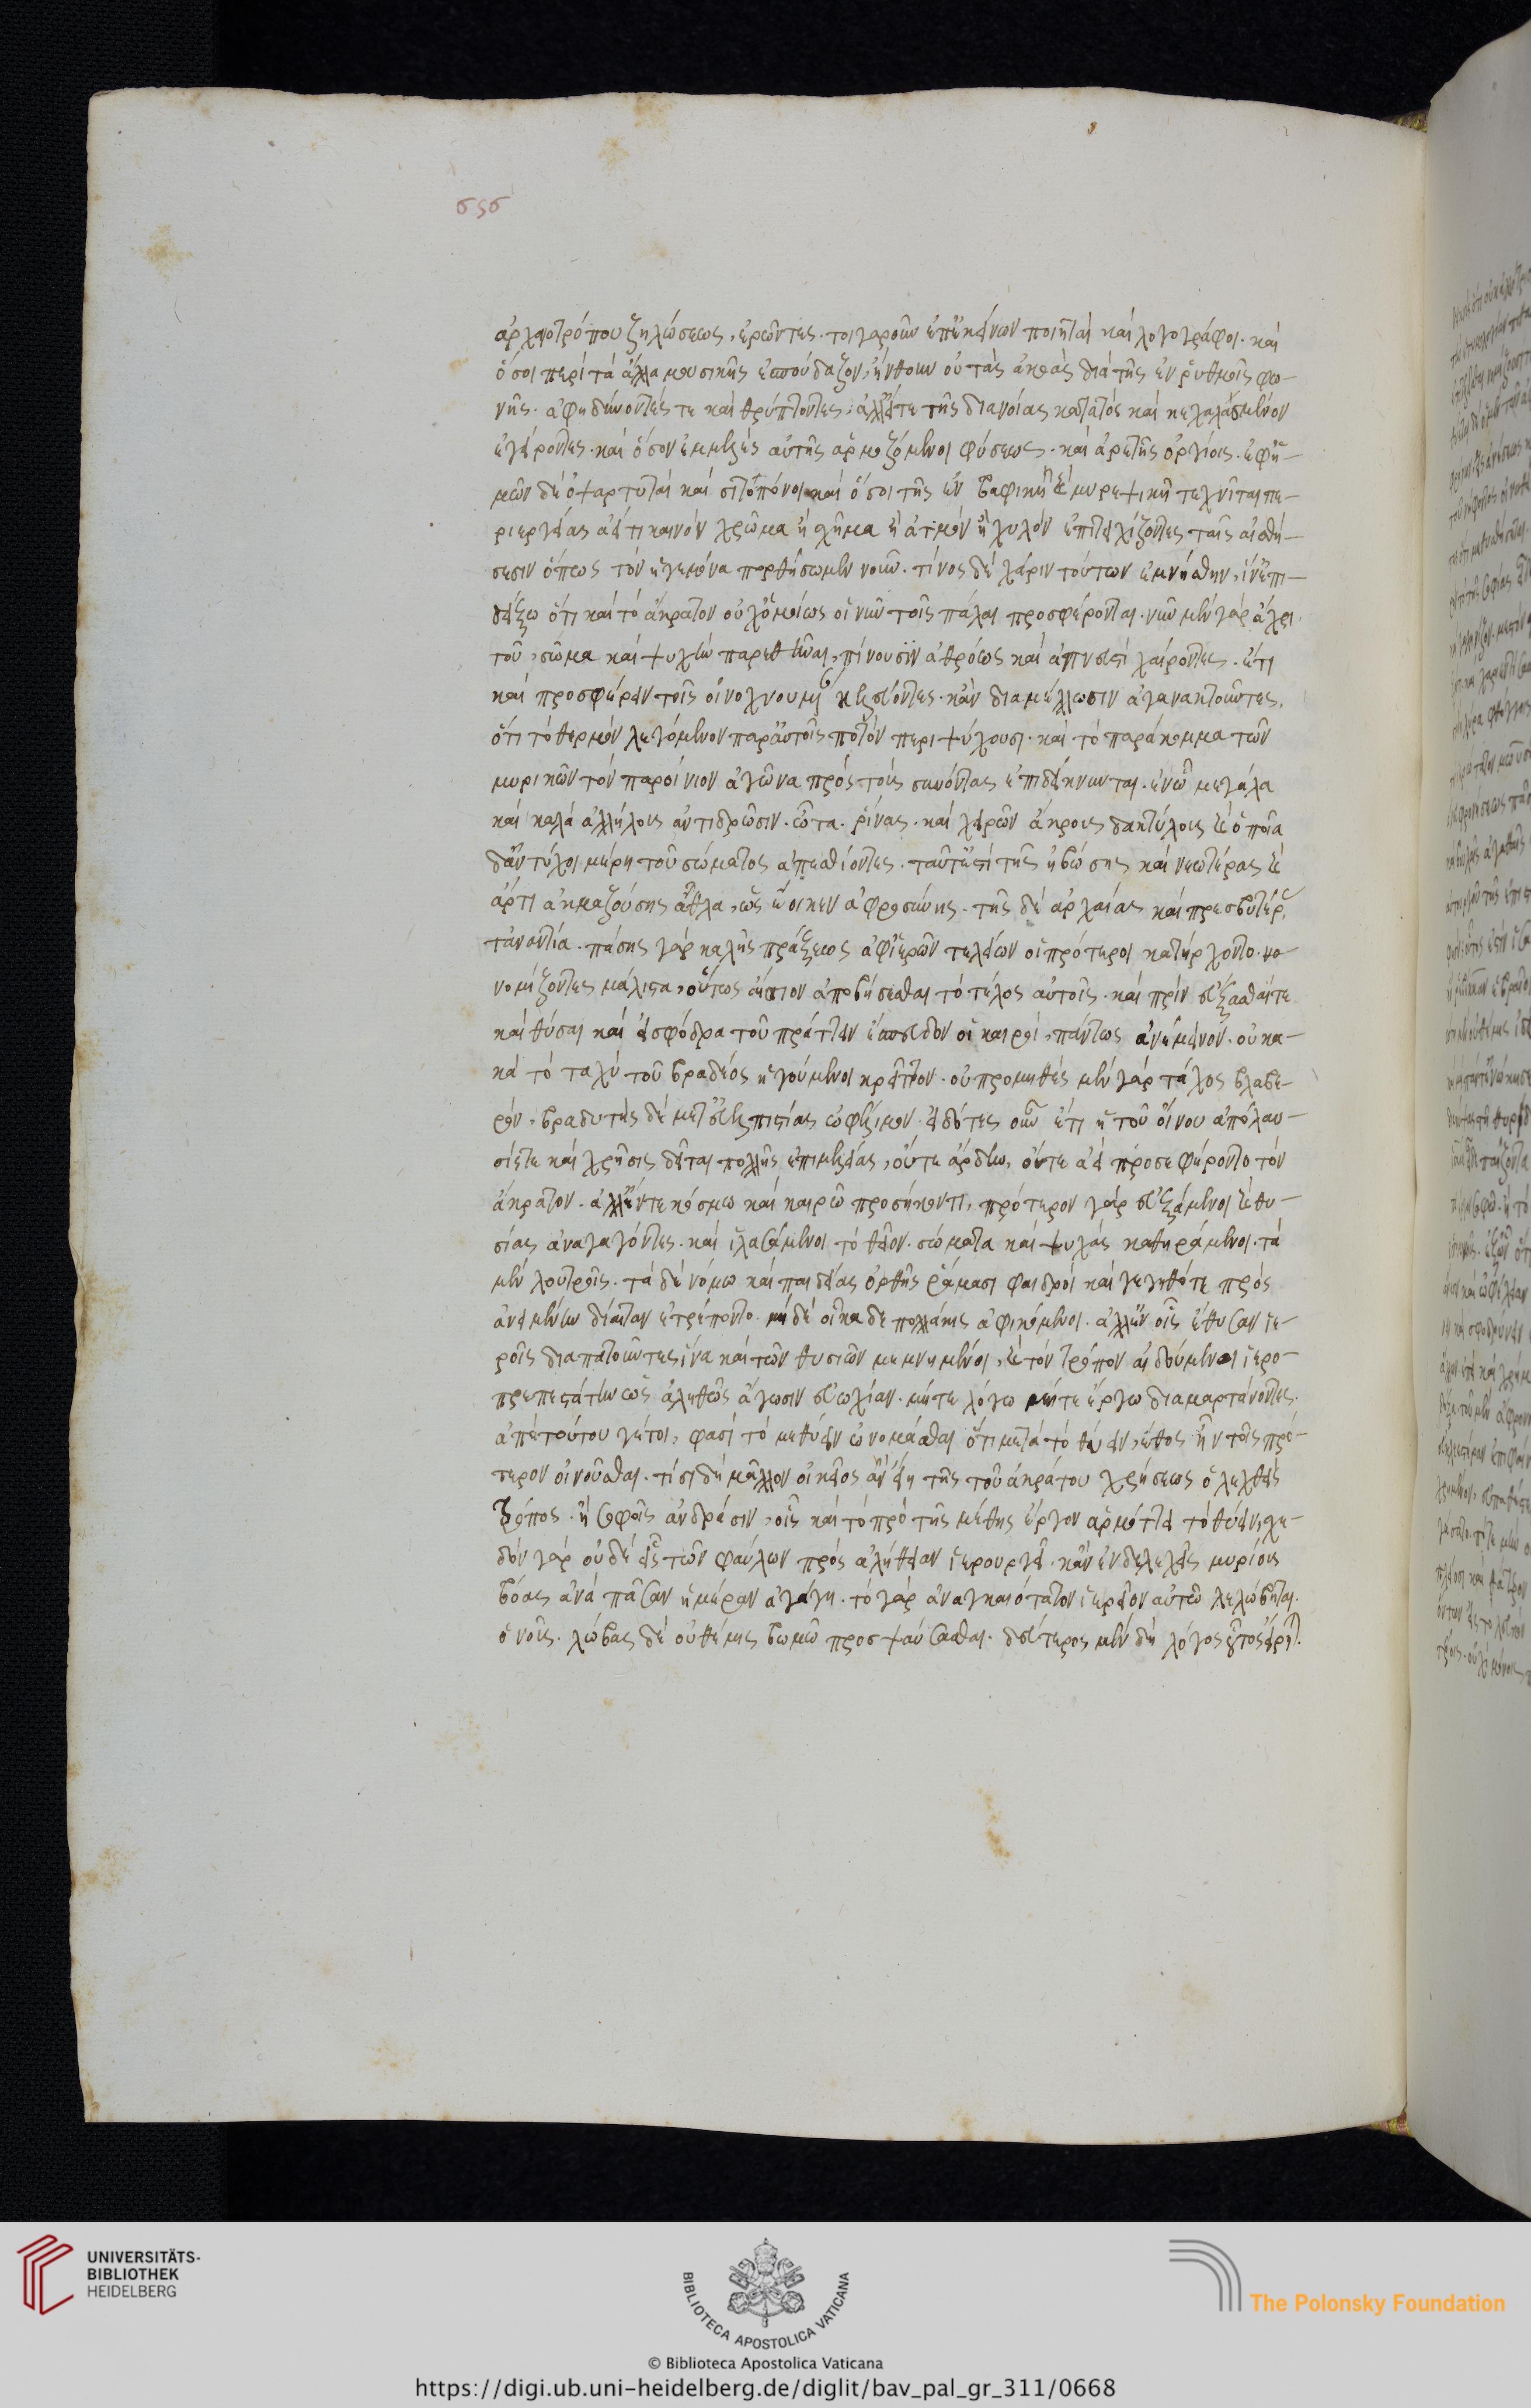 σςσ
ἀρχαιοτρόπου ζηλώσεως, ἐρῶντες. τοιγαροῦν ἐπ' ἐκείνων ποιηταὶ καὶ λογογράφοι. καὶ
ὅσοι περὶ τὰ ἄλλα μουσικῆς ἐσπούδαζον, ἤνθουν οὐ τὰς ἀκοὰς διὰ τῆς ἐν ῥυθμοῖς φω-
νῆς. ἀφηδύνοντές τε καὶ θρύπτοντες, ἀλλ' εἴτε τῆς διανοίας κατεαγὸς καὶ κεχαλασμένον
ἐγείροντες. καὶ ὅσον ἐμμελὲς αὐτῆς ἁρμοζόμενοι φύσεως. καὶ ἀρετῆς ὀργάνοις. ἐφ' ἡ-
μῶν δὲ ὀψαρτυταὶ καὶ σιτοπόνοι καὶ ὅσοι τῆς ἐν βαφικῇ καὶ μυρεψικῇ τεχνῖται πε-
ριεργείας ἀεί τι καινὸν χρῶμα ἢ σχῆμα ἢ ἀτμὸν ἢ χυλὸν ἐπιτειχίζοντες ταῖς αἰσθή-
σεσιν ὅπως τὸν ἡγεμόνα πορθήσωμεν νοῦν. τίνος δὲ χάριν τούτων ἐμνήσθην, ἵν' ἐπι-
δείξω ὅτι καὶ τὸ ἄκρατον οὐχ ὁμοίως οἱ νῦν τοῖς πάλαι προσφέρονται. νῦν μὲν γὰρ ἄχρι
τοῦ, σῶμα καὶ ψυχὴν παρεθῆναι, πίνουσιν ἀθρόως καὶ ἀπνευστὶ χαίροντες. ἔτι
καὶ προσφέρειν τοῖς οἰνοχοουμ κελεύοντες. κἂν διαμέλλωσιν ἀγανακτοῦντες,
ὅτι τὸ θερμὸν λεγόμενον παρ' αὐτοῖς ποτὸν περιψύχουσι. καὶ τὸ παράκομμα τῶν
μυρικῶν τὸν παροίνιον ἀγῶνα πρὸς τοὺς συνόντας ἐπιδείκνυνται. ἐν ᾧ μεγάλα
καὶ καλὰ ἀλλήλους ἀντιδρῶσιν. ὦτα. ῥίνας. καὶ χειρῶν ἄκρους δακτύλους καὶ ὁποῖα
δ' ἂν τύχοι μέρη τοῦ σώματος ἀπεσθίοντες. ταῦτ' ἐστὶ τῆς ἡβώσης καὶ νεωτέρας καὶ
ἄρτι ἀκμαζούσης ἆθλα, ὡς ἔοικεν ἀφροσύνης. τῆς δὲ ἀρχαίας καὶ πρεσβυτέρ
τἀναντία. πάσης γὰρ καλῆς πράξεως ἀφ' ἱερῶν τελείων οἱ πρότεροι κατήρχοντο. νο-
νομίζοντες μάλιστα, οὕτως αἴσιον ἀποβήσεσθαι τὸ τέλος αὐτοῖς. καὶ πρὶν εὔξασθαί τε
καὶ θῦσαι καὶ εἰ σφόδρα τοῦ πράττειν ἔσπευδον οἱ καιροί, πάντως ἀνέμενον. οὐ κα-
κὰ τὸ ταχὺ τοῦ βραδέος ἡγούμενοι κρεῖττον. οὐ προμηθὲς μὲν γὰρ τάχος βλαβε-
ρόν, βραδυτὴς δὲ μετ' εὐελπιστίας ὠφέλιμον. εἰδότες οὖν ἔτι ἡ τοῦ οἴνου ἀπόλαυ-
σίς τε καὶ χρῆσις δεῖται πολλῆς ἐπιμελείας, οὔτε ἄρδην, οὔτε ἀεὶ προσεφέροντο τὸν
ἄκρατον. ἀλλ' ἔν τε κόσμω καὶ καιρῷ προσήκοντι, πρότερον γὰρ εὐξάμενοι καὶ θυ-
σίας ἀναγαγόντες. καὶ ἱλασάμενοι τὸ θεῖον. σώματα καὶ ψυχὰς καθηράμενοι. τὰ
μὲν λουτροῖς. τὰ δὲ νόμω καὶ παιδείας ὀρθῆς ῥάμασι φαιδροὶ καὶ γεγηθότε πρὸς
ἀνειμένην δίαιταν ἐτρέποντο. μηδὲ οἴκαδε πολλάκις ἀφικόμενοι. ἀλλ' ἐν οἷς ἔθυσαν ἱε-
ροῖς διαπατοῦντες ἵνα καὶ τῶν θυσιῶν μεμνημένοι, καὶ τὸν τρόπον αἰδούμενοι ἱερο-
πρεπεστάτην ὡς ἀληθῶς ἄγωσιν εὐωχίαν. μήτε λόγω μήτε ἔργω διαμαρτάνοντες.
ἀπὸ τούτου γέτοι, φασὶ τὸ μεθύειν ὠνομάσθαι ὅτι μετὰ τὸ θύειν, ἔθος ἦν τοῖς πρό-
τερον οἰνοῦσθαι. τίσι δὴ μᾶλλον οἰκεῖος ἂν εἴη τῆς τοῦ ἀκράτου χρήσεως ὁ λεχθεὶς
τρόπος. ἢ σοφοῖς ἀνδράσιν, οἷς καὶ τὸ πρὸ τῆς μέθης ἔργον ἁρμόττει τὸ θύειν, σχε-
δὸν γὰρ οὐδὲ εἷς τῶν φαύλων πρὸς ἀλήθειαν ἱερουργεῖ. κἂν ἐνδελεχεῖς μυρίους
βόας ἀνὰ πᾶσαν ἡμέραν ἀγάγῃ. τὸ γὰρ ἀναγκαιότατον ἱερεῖον αὐτῶ λελώβηται.
ὁ νοῦς. λώβας δὲ οὐ θέμις βωμῶ προσψαύσασθαι. δεύτερος μὲν δὴ λόγος οὗτος εἴρητ.
UNIVERSITÄTS-
BIBLIOTHEK
HEIDELBERG
BIBLIOTECA APOSTOLICA VATICANA
The Polonsky Foundation
© Biblioteca Apostolica Vaticana
https://digi.ub.uni-heidelberg.de/diglit/bav_pal_gr_311/0668